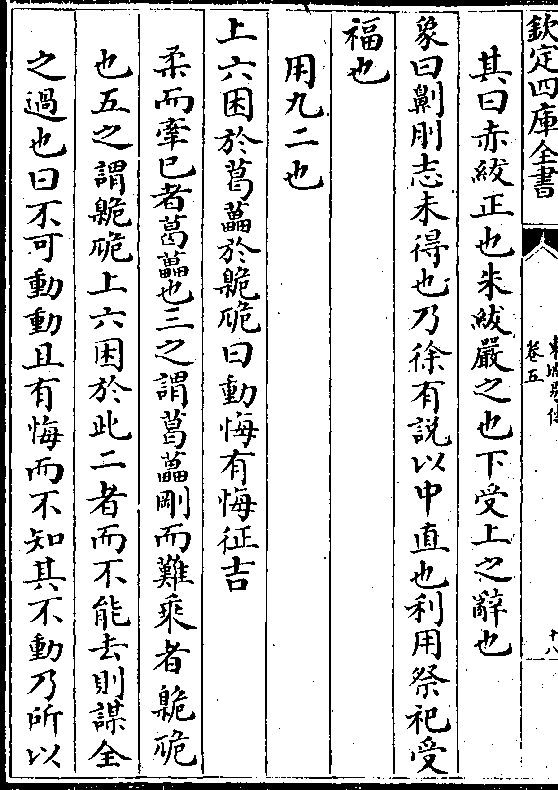 欽定四庫全書
卷五
十八
其曰赤紱正也朱紱嚴之也下受上之辭也
象曰劓刖志未得也乃徐有說以中直也利用祭祀受
福也
用九二也
上六困於葛藟於臲卼曰動悔有悔征吉
柔而牽已者葛藟也三之謂葛藟剛而難乘者臲卼
也五之謂臲卼上六困於此二者而不能去則謀全
之過也曰不可動動且有悔而不知其不動乃所以